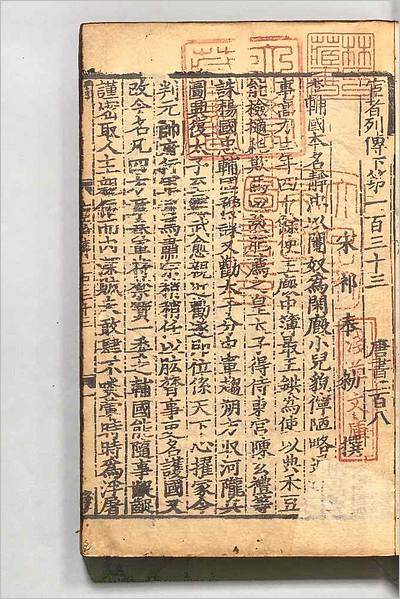 宦者列傳下第一百三十三
唐書二百八
宋祁奉勑撰
李輔國本名靜忠以閹奴為閑廄小兒貌儜陋略通
事高力士年四十餘使主廄中簿最王鉷為使以典禾豆
能檢擿耗欺馬以故肥薦之皇太子得侍東宮陳玄禮等
誅楊國忠輔國豫謀又勸太子分中軍趨朔方収河隴兵
圖興復太子至靈武愈親近勸遂即位係天下心擢家令
判元帥府行軍司馬肅宗稍稍任以肱膂事更名護國又
改今名凡四方章奏軍符禁寶一委之輔國能隨事齪齪
謹密取人主親信而內深賊未敢肆不啖葷時時為浮屠